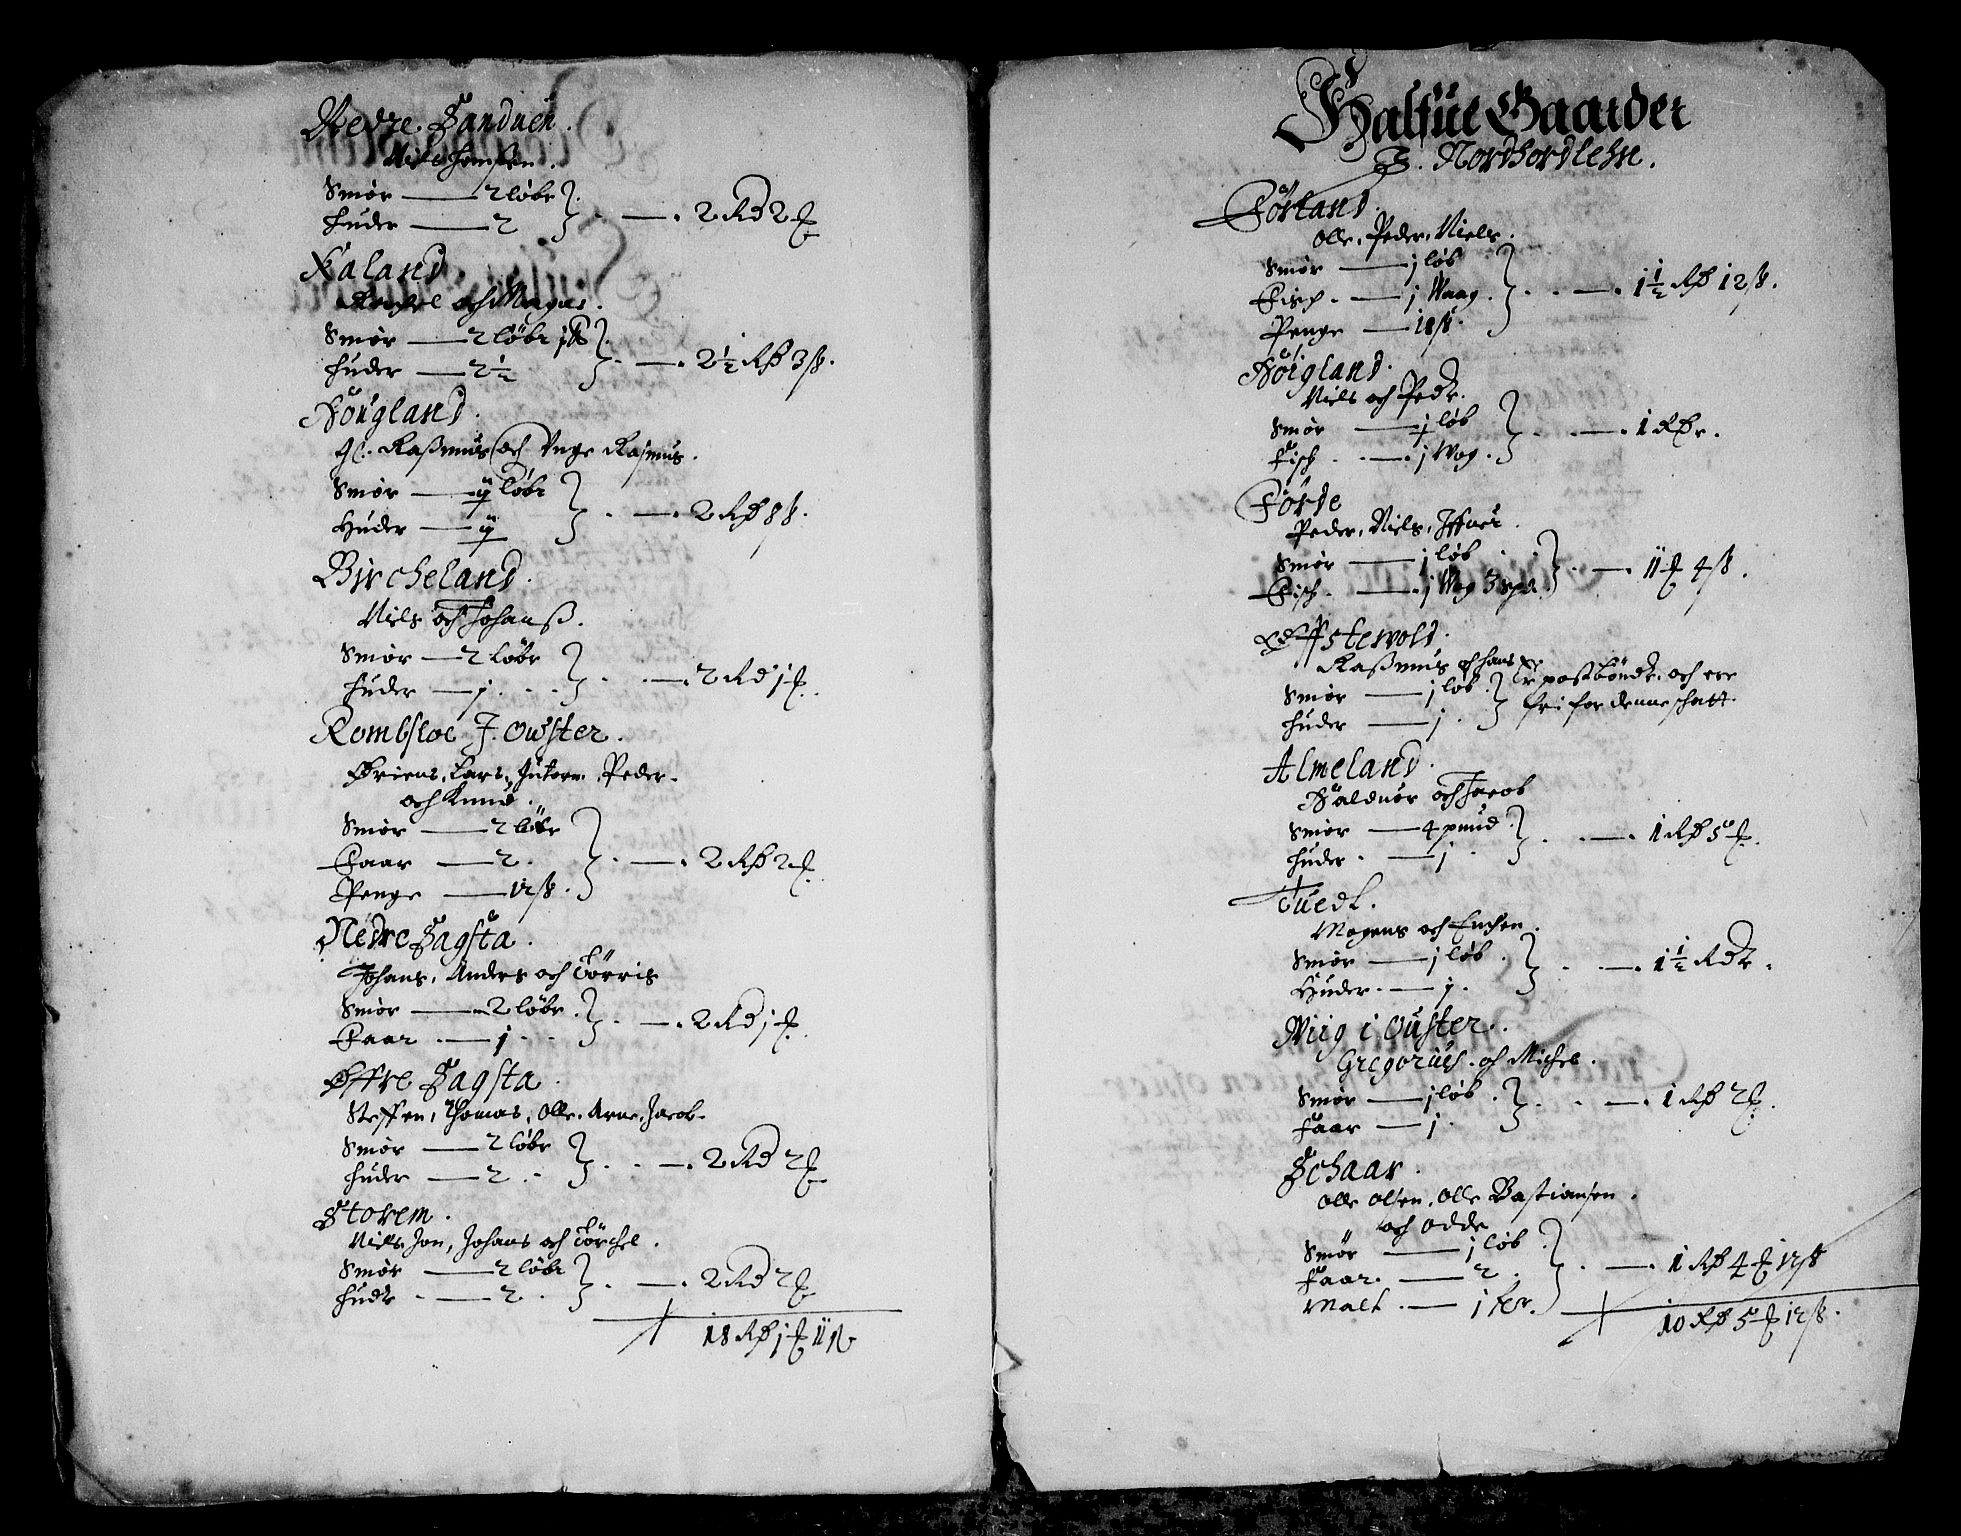 Nedre Sanduen.
Niels Hanssen.
Smör — 2 löbe
Huder — 2 — 2 Rd 2 ₰
Haland
och Mogns.
Smör — 2 löbe
Huder — 2½ — 2½ Rd 3 ß.
Höugland.
Gl. Rassmus och Vnge Rasmus.
Smör — ij löbe
Huder — ij — 2 Rd 8 ß.
Bircheland.
Niels och Johanss.
Smör — 2 löbe
Huder — j — 2 Rd j ₰.
Rombsloe J. Owster.
Briens, Lars, Peder.
och Knud.
Smör — 2 löbe
Faar — 2.
Penge — 12 ß. — 2 Rd 2 ₰
Nedre Hagsta.
Johans, Anders och Törris
Smör — 2 löbe.
Faar — j — 2 Rd j ₰.
Öffre Hagsta.
Steffen, Thomas, Olle, Arne, Jacob.
Smör — 2 löbe
Huder — 2 — 2 Rd 2 ₰
Storem.
Niels, Jon, Johans och Törchel.
Smör — 2 löbe
Hude — 2 — 2 Rd 2 ₰
18 Rd j ₰ 11 ß
Halfue Gaarder
J. Nordhordlehn.
Förland.
Olle, Peder, Niels.
Smör — j löb
Fisch — j Waag.
Penge — 18 ß. — 1½ Rd 12 ß.
Höigland.
Niels och Pedr.
Smör — j löb
Fisch — j Wog. — 1 Rdr.
Förde
Peder, Niels, Iffuer.
Smör — j löb
Fisch — j Wog 3 spd. — 11 ₰ 4 ß.
Rassmus och Hans
Smör — j löb. er postbönder, och ere
Huder — j. fri for denne schatt.
Almeland.
Halduor och Jacob
Smör — 4 pund.
Huder — j — 1 Rd 5 ₰.
Tuedt.
Mogens och Enchen.
Smör — j löb.
Huder — j. — 1½ Rdr.
Wiig i Ouster.
Gregorius och Michel.
Smör — j löb.
Faar — j. — 1 Rd 2 ₰.
Schaar.
Olle Olsen, Olle Bastiansen.
och Odde
Smör — j löb.
Faar — 2.
Malt — j — 1 Rd 4 ₰ 12 ß
10 Rd 5 ₰ 12 ß.